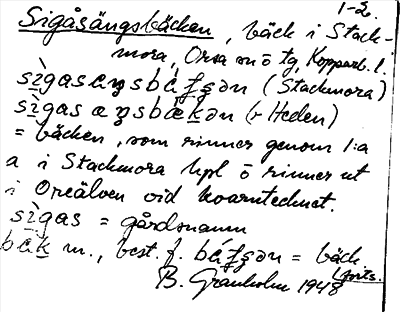 1-2.
Sigåsängsbäcken, bäck i Stack-
mora, Orsa sn ö tg, Kopparb. l.
sìgasæŋsbáʄʂən (Stackmora)
sìgasæŋsbǽkən (r Heden)
= bäcken, som rinner genom l:a
a i Stackmora by ö rinner ut
i Oreälven vid kvarntecknet.
sìgas = gårdsnamn
bǽk m., best. f. báʄʂən = bäck
B. Granholm 1948 forts.